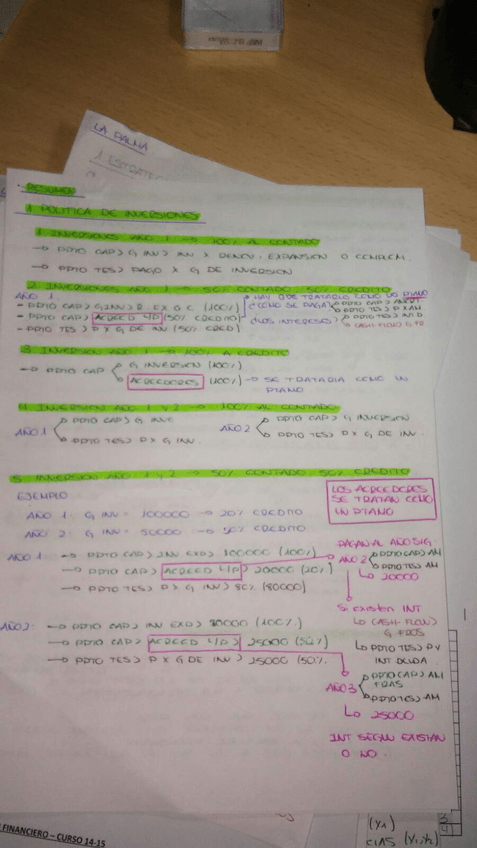 LA PALMA
RESUMEN
1. POLITICA DE INVERSIONES
1. INVERSIONES AÑO 1 → 100% AL CONTADO
→ PPTO CAP > G INV > INV X RENOV. EXPANSION O COMPLEM
→ PPTO TES > PAGO X G DE INVERSION
2. INVERSIONES AÑO 1 → 50% CONTADO 50% CREDITO
AÑO 1
- PPTO CAP > G INV > R. EX O C (100%)
- PPTO CAP > ACREED L/P (50% CREDITO)
- PPTO TES > P X G DE INV (50% CRED)
HAY QUE TRATARLO COMO UN PTMO
¿COMO SE PAGA?
¿LOS INTERESES?
3. INVERSION AÑO 1 → 100% A CREDITO
→ PPTO CAP G INVERSION (100%)
ACREEDORES (100%) → SE TRATARIA COMO UN PTAMO
4. INVERSION AÑO 1 Y 2 → 100% AL CONTADO
AÑO 1 PPTO CAP > G INV
PPTO TES > P X G INV.
AÑO 2 PPTO CAP > G INVERSION
PPTO TES > P X G DE INV.
5. INVERSION AÑO 1 Y 2 → 50% CONTADO 50% CREDITO
EJEMPLO
LOS ACREEDORES
SE TRATAN COMO
UN PTAMO
AÑO 1: G INV = 100000 → 20% CREDITO
AÑO 2: G INV = 50000 → 50% CREDITO
AÑO 1: → PPTO CAP > INV EXP > 100000 (100%)
→ PPTO CAP > ACREED L/P > 20000 (20%)
→ PPTO TES > P X G INV > 80% (80000)
PAGAN AL AÑO SIG.
AÑO 2 PPTO CAP > AM
PPTO TES > AM
→ 20000
Si existen INT
→ CASH-FLOW >
G FROS
→ PPTO TES > PV
INT DEUDA
AÑO 2: → PPTO CAP > INV EXP > 50000 (100%)
→ PPTO CAP > ACREED L/P > 25000 (50%)
→ PPTO TES > P X G DE INV > 25000 (50%)
AÑO 3 PPTO CAP > AM
PPTO TES > AM
→ 25000
INT SEGUN EXISTAN
O NO
FINANCIERO – CURSO 14-15